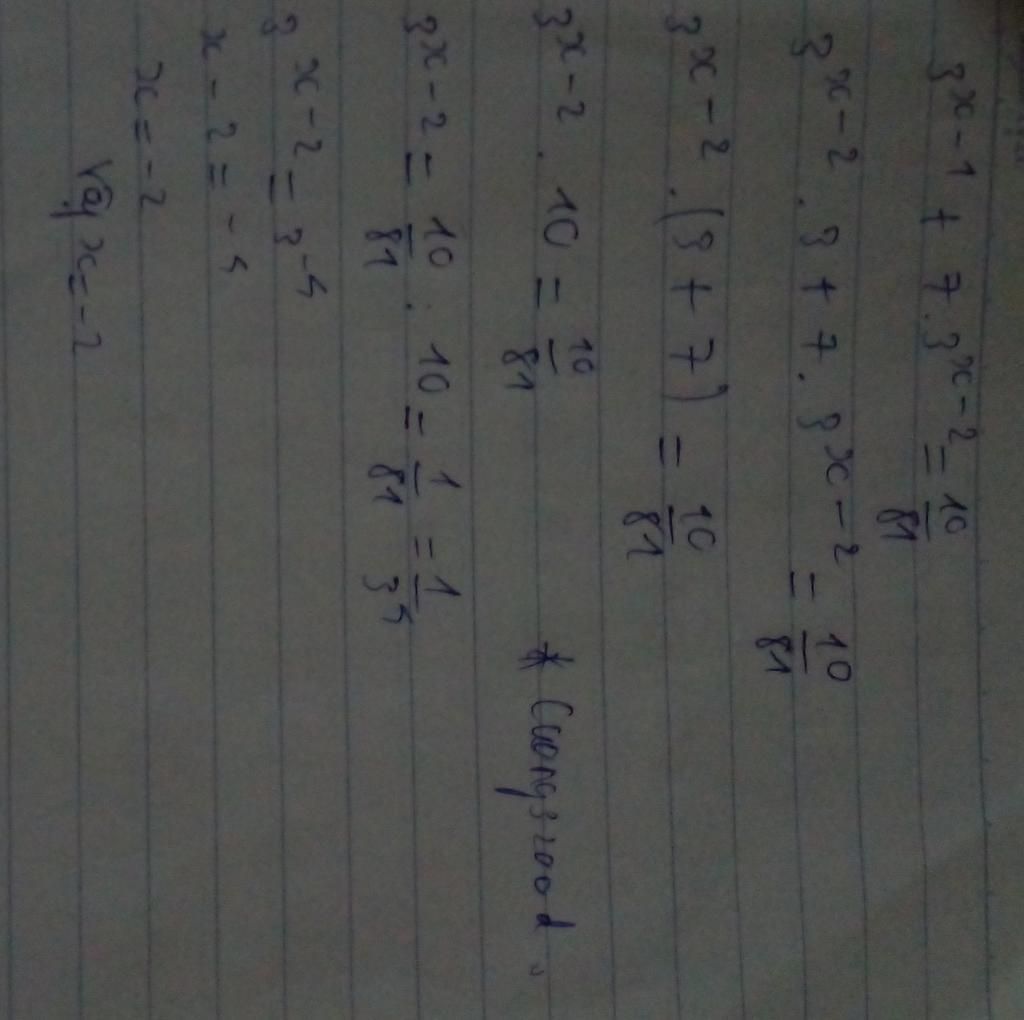 3^{x-1} + 7.3^{x-2} = \frac{10}{81}
3^{x-2} . 3 + 7. 3^{x-2} = \frac{10}{81}
3^{x-2} . (3 + 7) = \frac{10}{81}
3^{x-2} . 10 = \frac{10}{81}
3^{x-2} = \frac{10}{81} : 10 = \frac{1}{81} = \frac{1}{3^4}
3^{x-2} = 3^{-4}
x - 2 = -4
x = -2
Vậy x = -2